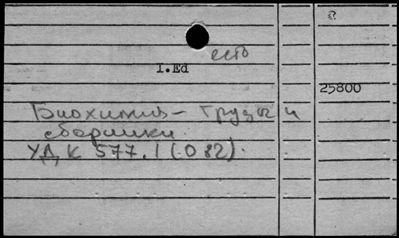 есть
I.Ed
25800
Биохимия - Труды и
сборники.
УДК 577.1 (082).